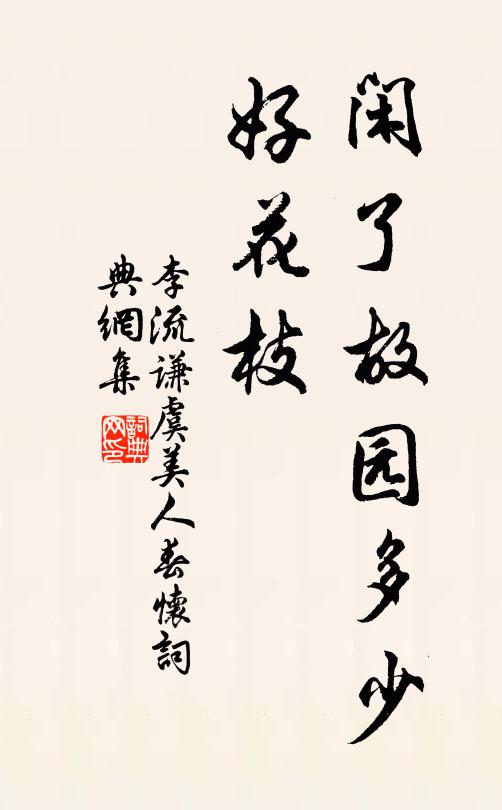 闲了故园多少
好花枝
李流谦虞美人春懷詞
典網集
詞典
网印